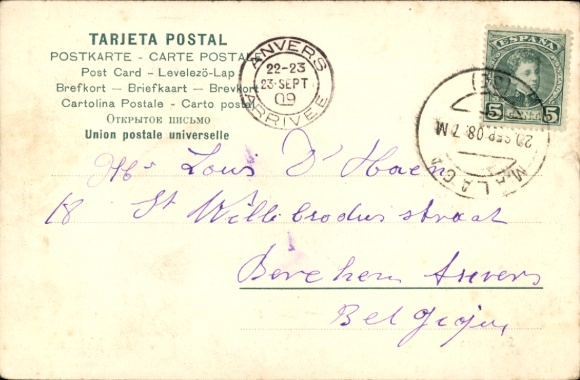 TARJETA POSTAL
POSTKARTE - CARTE POSTALE
Post Card - Levelezö-Lap
Brefkort - Briefkaart - Brevkort
Cartolina Postale - Carto postal
ОТКРЫТОЕ ПИСЬМО
Union postale universelle
ANVERS
22-23
23 SEPT
09
ARRIVEE
ESPAÑA
5 CENT. 5
MALAGA
SEP. 08. 7 M
Mr Louis D'Haen
18 St Willibrodus straat
Berchem Anvers
Belgique